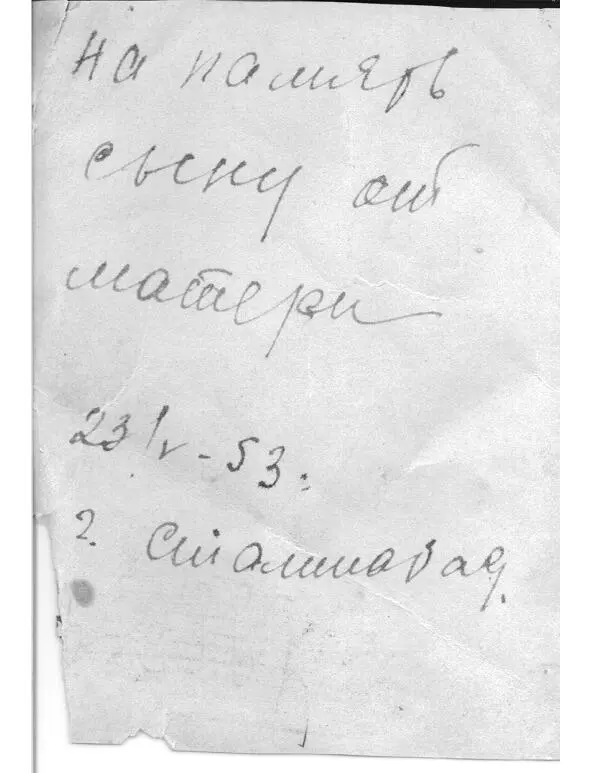 на память
сыну от
матери
23/V-53.
г. Сталинабад.